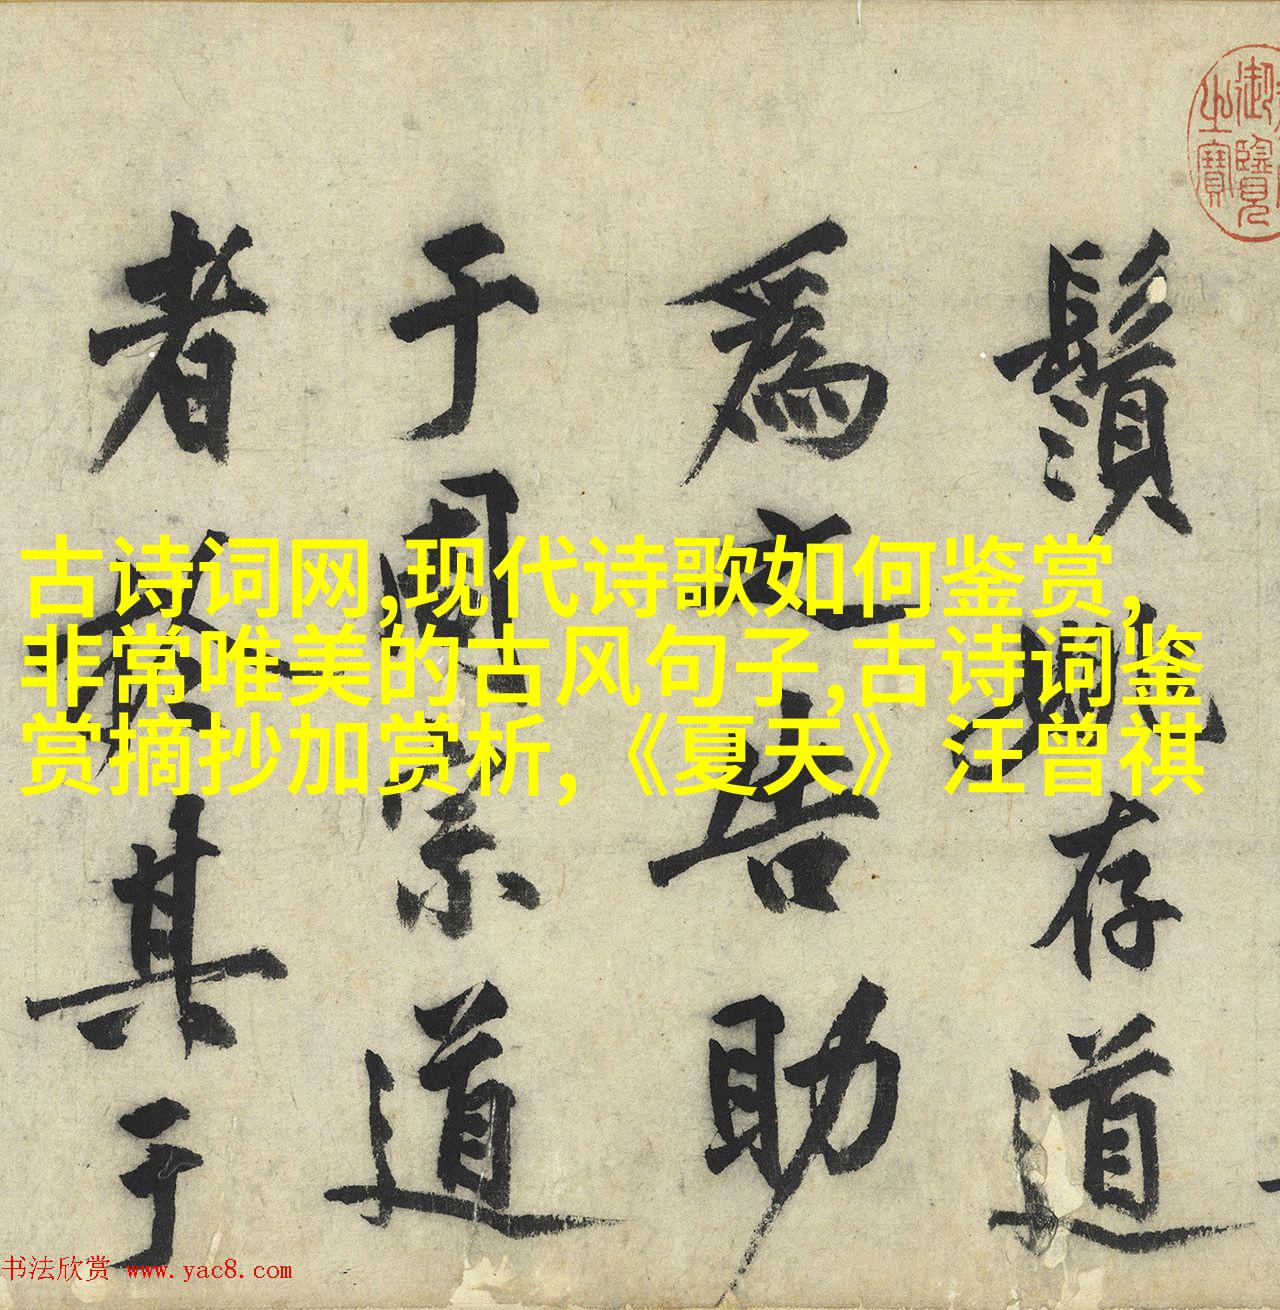 鬚 既 存 道
為 之 告 助
于 周 宗 道
者 於 其 于
御覽
之寶
古诗词网,现代诗歌如何鉴赏,
非常唯美的古风句子,古诗词鉴
赏摘抄加赏析,《夏天》汪曾祺
书法欣赏 www.yac8.com